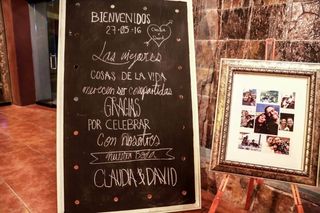 BIENVENIDOS
27-05-16
Las mejores
COSAS DE LA VIDA
merecen ser compartidas
GRACIAS
POR CELEBRAR
Con Nosotros
nuestra Boda
CLAUDIA & DAVID